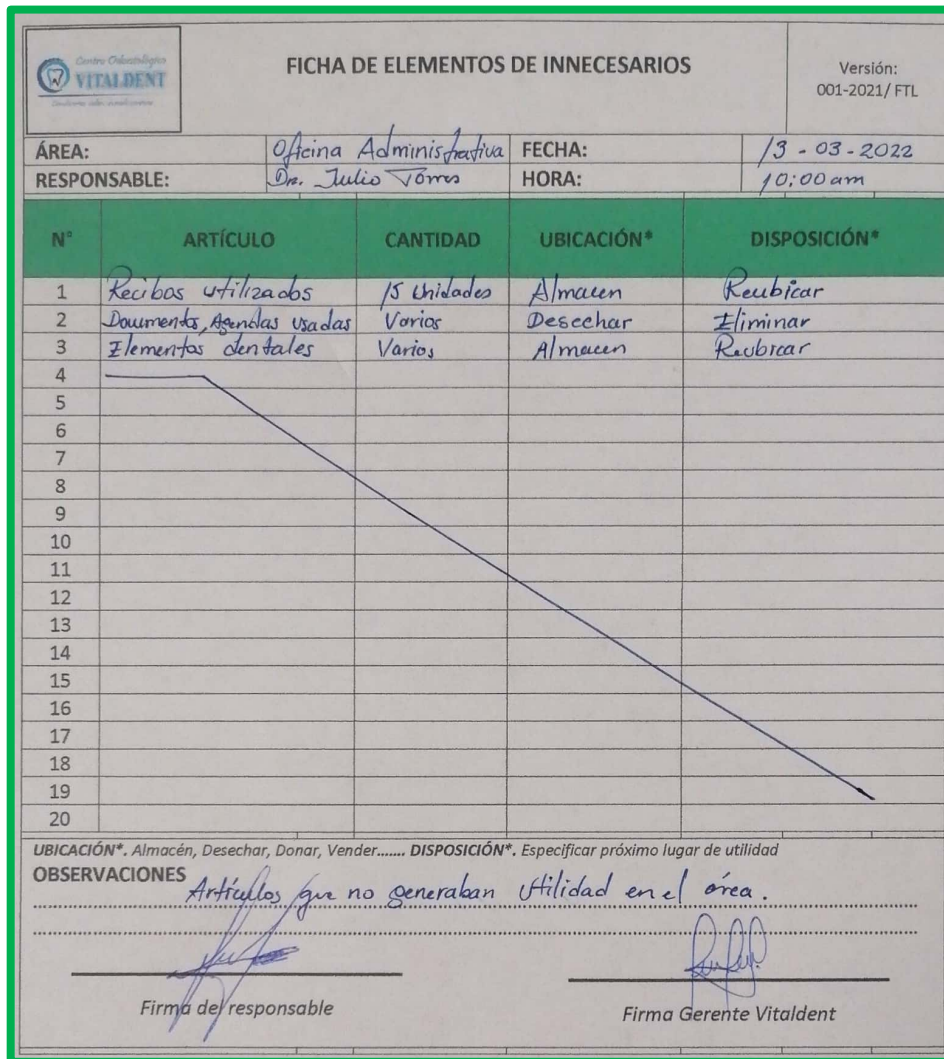 Centro Odontológico
VITALDENT
FICHA DE ELEMENTOS DE INNECESARIOS
Versión:
001-2021/ FTL
ÁREA: Oficina Administrativa FECHA: 13-03-2022
RESPONSABLE: Dr. Julio Torres HORA: 10:00 am
N° ARTÍCULO CANTIDAD UBICACIÓN* DISPOSICIÓN*
1 Recibos utilizados 15 Unidades Almacen Reubicar
2 Documentos, Agendas usadas Varios Desechar Eliminar
3 Elementos dentales Varios Almacen Reubicar
4
5
6
7
8
9
10
11
12
13
14
15
16
17
18
19
20
UBICACIÓN*. Almacén, Desechar, Donar, Vender....... DISPOSICIÓN*. Especificar próximo lugar de utilidad
OBSERVACIONES
Artículos que no generaban utilidad en el área.
Firma del responsable Firma Gerente Vitaldent